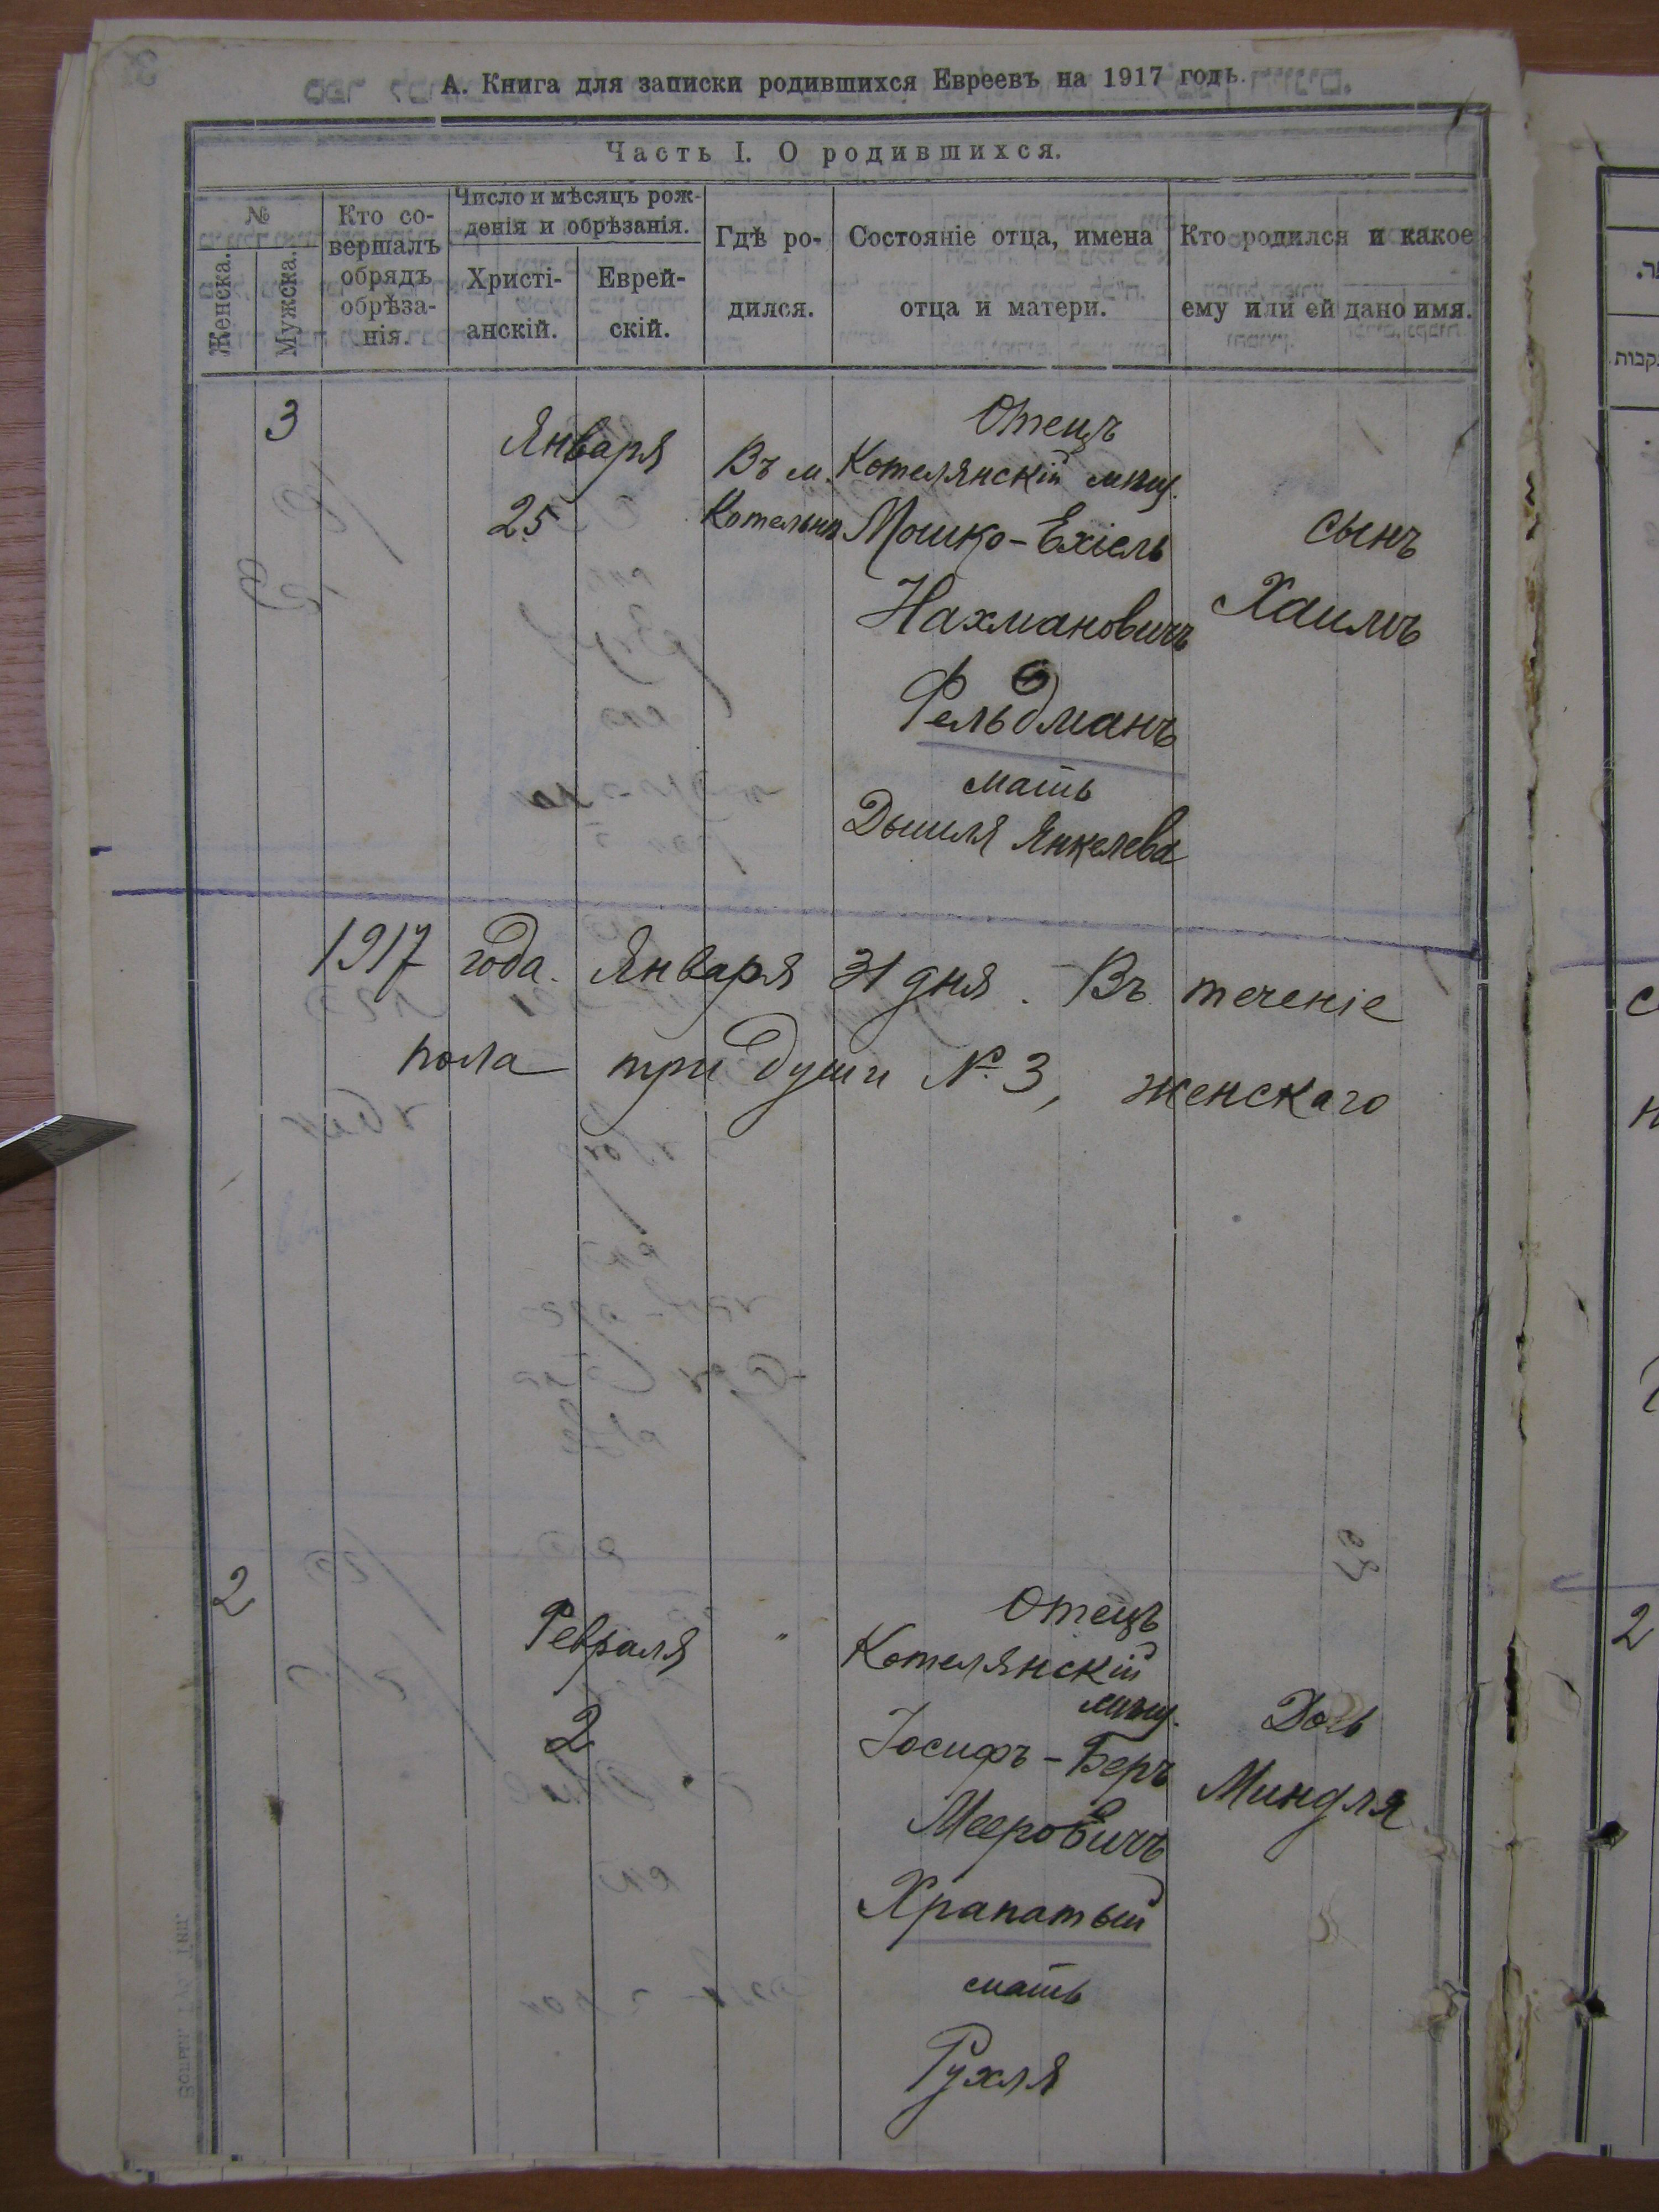 А. Книга для записки родившихся Евреевъ на 1917 годъ.
Часть I. О родившихся.
№
Женска.
Мужска.
Кто со-
вершалъ
обрядъ
обрѣза-
нія.
Число и мѣсяцъ рож-
денія и обрѣзанія.
Христі-
анскій.
Еврей-
скій.
Гдѣ ро-
дился.
Состояніе отца, имена
отца и матери.
Кто родился и какое
ему или ей дано имя.
3
Января
25
Въ м.
Котельнѣ
Отецъ
Котелянскій мѣщ.
Мошко-Ехіель
Нахмановичъ
Фельдманъ
мать
Дышля Янкелева
сынъ
Хаимъ
1917 года. Января 31 дня. Въ теченіе
пола три души № 3, женскаго
2
Февраля
2
"
Отецъ
Котелянскій
мѣщ.
Іосифъ-Беръ
Мееровичъ
Храпатый
мать
Рухля
Дочь
Миндля
2